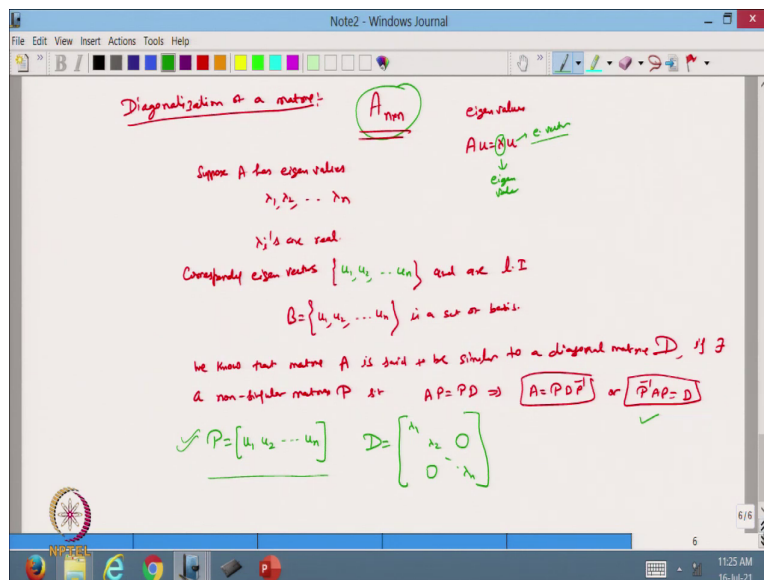 Note2 - Windows Journal
File Edit View Insert Actions Tools Help
Diagonalization of a matrix:-
A n×n
eigen values
Au=λu → e. vector
↓
eigen
value
Suppose A has eigen values
λ₁, λ₂, ... λₙ
λⱼ's are real.
Correspondy eigen vectors {u₁, u₂, ... uₙ} and are l.I
B={u₁, u₂, ... uₙ} is a set of basis.
we know that matrix A is said to be similar to a diagonal matrix D, if ∃
a non-singular matrix P st AP=PD ⇒ A=PDP⁻¹ or P⁻¹AP=D
✓
✓ P=[u₁ u₂ ... uₙ] D=[λ₁
λ₂ 0
0 ⋱ λₙ]
6/6
6
NPTEL
11:25 AM
16-Jul-21